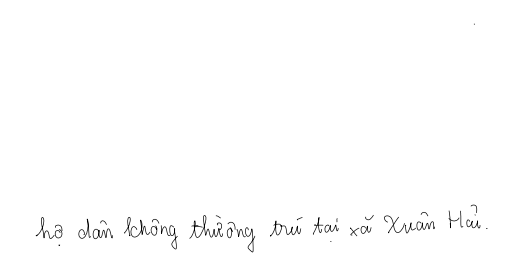 hộ dân không thường trú tại xã Xuân Hải.